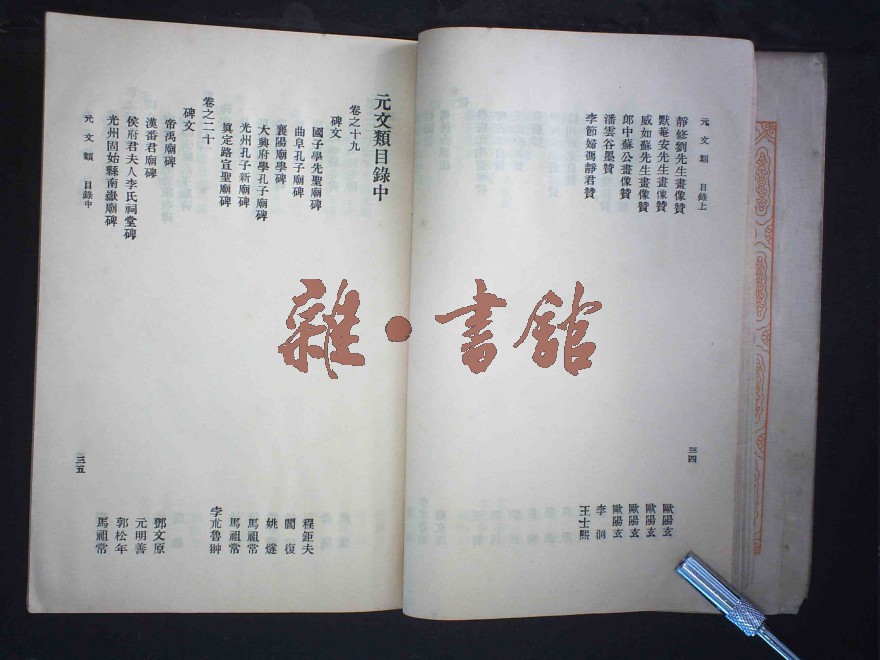 元文類 目錄上
靜修劉先生畫像贊 歐陽玄
默菴安先生畫像贊 歐陽玄
威如蘇先生畫像贊 歐陽玄
郎中蘇公畫像贊 歐陽玄
潘雲谷墨贊 李泂
李節婦馮靜君贊 王士熙
三四
元文類目錄中
卷之十九
碑文
國子學先聖廟碑 程鉅夫
曲阜孔子廟碑 閻復
襄陽廟學碑 姚燧
大興府學孔子廟碑 馬祖常
光州孔子新廟碑 馬祖常
真定路宣聖廟碑 孛朮魯翀
卷之二十
碑文
帝禹廟碑 鄧文原
漢番君廟碑 元明善
侯府君夫人李氏祠堂碑 郭松年
光州固始縣南嶽廟碑 馬祖常
元文類 目錄中
三五
雜·書館